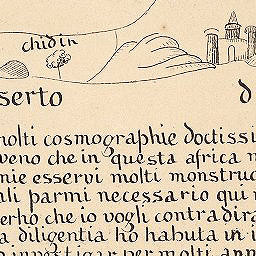 chidin
serto d
molti cosmographie doctissi
veno che in questa africa
nie esservi molti monstruo
ali parmi necessario qui
perho che io vogli contradira
a diligentia ho habuta in i
investigar per molti ann